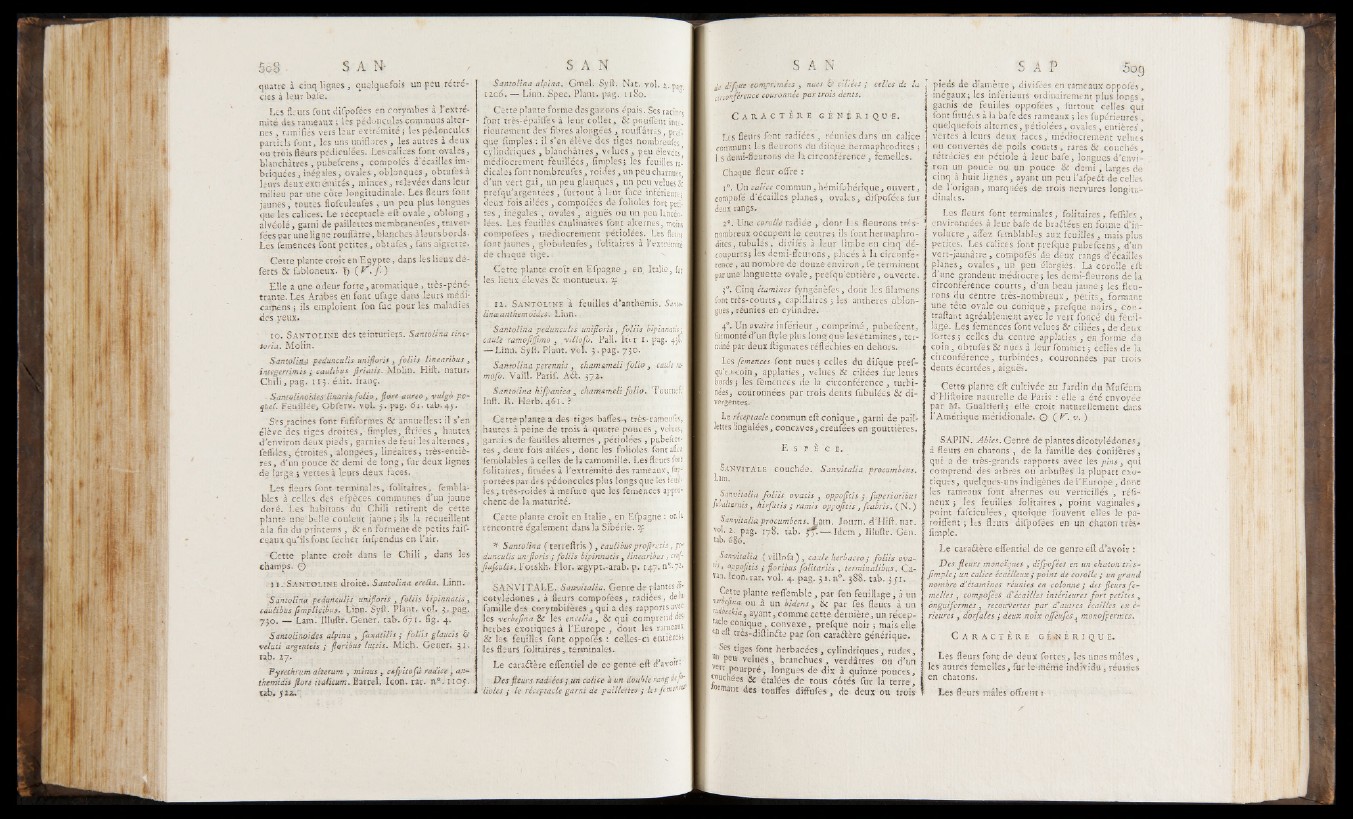 508 S A N
quatre à cinq lignes, quelquefois un peu rétré-
cies à leur base.
Les fleurs sont disposées en corymbes à l'extré-
mité des rameaux ; les pédoncules communs alter-
nes, ramifiés vers leur extrémité ; les pédoncules
partiels sont, les uns uniflores, les autres à deux
ou trois fleurs pédiculées. Les calices sont ovales,
blanchâtres, pubescens, composés d'écailles im-
briquées, inégales, ovales, oblongues, obtuses à
leurs deux extrémités, minces, relevées dans leur
milieu par une côte longitudinale. Les fleurs sont
jaunes, toutes flosculeuses, un peu plus longues
que les calices. Le réceptacle est ovale, oblong,
alvéolé, garni de paillettes membraneuses, traver-
sées par une ligne roussâtre, blanches à leurs bords.
Les semences sont petites, obtuses, sans aigrette.
Cette plante croît en Egypte, dans les lieux dé-
serts & sabloneux. ♄ (V. s.)
Elle a une odeur forte, aromatique, très-péné-
trante. Les Arabes en font usage dans leurs médi-
camens ; ils emploient son suc pour les maladies
des yeux.
10. SANTOLINE des teinturiers. Santolina tinc-
toria. Molin.
Santolina pedunculis unifloris, foliis linearibus,
integerrimis ; caulibus striatis. Molin. Hist. natur.
Chili, pag. 115. édit. franç.
Santolinoides linariæ folio, flore aureo, vulgò po-
quel. Feuillée, Observ. vol. 3. pag. 61. tab. 45.
Ses racines sont fusiformes & annuelles : il s'en
élève des tiges droites, simples, striées, hautes
d'environ deux pieds, garnies de feuilles alternes,
sessiles, étroites, alongées, linéaires, très-entiè-
res, d'un pouce & demi de long, sur deux lignes
de large ; vertes à leurs deux faces.
Les fleurs sont terminales, solitaires, sembla-
bles à celles des espèces communes d'un jaune
doré. Les habitans du Chili retirent de cette
plante une belle couleur jaune ; ils la recueillent
à la fin du printems, & en forment de petits fais-
ceaux qu'ils font sécher suspendus en l'air.
Cette plante croît dans le Chili, dans les
champs. ☉
11. SANTOLINE droite. Santolina erecta. Linn.
Santolina pedunculis unifloris, foliis bipinnatis,
caulibus simplicibus. Linn. Syst. Plant. vol. 3. pag.
730. — Lam. Illustr. Gener. tab. 671. fig. 4.
Santolinoides alpina, saxatilis ; foliis glaucis &
veluti argenteis ; floribus luteis. Mich. Gener. 31.
tab. 27.
Pyrethrum alterum, minus, cespitosâ radice ; an-
themidis flore italicum. Barrel. Icon. rar. n°. 1105.
tab. 522.
S A N
Santolina alpina. Gmel. Syst. Nat. vol. 2. pag.
1206. — Linn. Spec. Plant. pag. 1180.
Cette plante forme des gazons épais. Ses racines
sont très-épaisses à leur collet, & poussent infé-
rieurement des fibres alongées, roussâtres, pres-
que simples : il s'en élève des tiges nombreuses,
cylindriques, blanchâtres, velues, peu élevées,
médiocrement feuillées, simples ; les feuilles ra-
dicales sont nombreuses, roides, un peu charnues,
d'un vert gai, un peu glauques, un peu velues &
presqu'argentées, surtout à leur face inférieure ;
deux fois ailées, composées de folioles fort peti-
tes, inégales, ovales, aiguës ou un peu lancéo-
lées. Les feuilles caulinaires sont alternes, moins
composées, médiocrement pétiolées. Les fleurs
sont jaunes, globuleuses, solitaires à l'extrémité
de chaque tige.
Cette plante croît en Espagne, en Italie, sur
les lieux élevés & montueux. ♃
12. SANTOLINE à feuilles d'anthémis. Santo-
lina anthemoides. Linn.
Santolina pedunculis unifloris, foliis bipinnatis ;
caule ramosissimo, villoso. Pall. Iter 1. pag. 48.
— Linn. Syst. Plant. vol. 3. pag. 730.
Santolina perennis, chamæmeli folio, caule ra-
moso. Vaill. Paris. Act. 372.
Santolina hispanica, chamæmeli folio. Tournef.
Inst. R. Herb. 461. ?
Cette plante a des tiges basses, très-rameuses,
hautes à peine de trois à quatre pouces, velues,
garnies de feuilles alternes, pétiolées, pubescen-
tes, deux fois ailées, dont les folioles sont assez
semblables à celles de la camomille. Les fleurs sont
solitaires, situées à l'extrémité des rameaux, sup-
portées par des pédoncules plus longs que les feuil-
les, très-roides à mesure que les semences appro-
chent de la maturité.
Cette plante croît en Italie, en Espagne : on la
rencontre également dans la Sibérie. ♃
* Santolina (terrestris), caulibus prostratis, pe-
dunculis unifloris ; foliis bipinnatis, linearibus, cras-
siusculis. Forskh. Flor. ægypt.-arab. p. 147. n°. 72.
SANVITALE. Sanvitalia. Genre de plantes di-
cotylédones, à fleurs composées, radiées, de la
famille des corymbifères, qui a des rapports avec
les verbesina & les encelia, & qui comprend des
herbes exotiques à l'Europe, dont les rameaux
& les feuilles sont opposés : celles-ci entières ;
les fleurs solitaires, terminales.
Le caractère essentiel de ce genre est d'avoir :
Des fleurs radiées ; un calice à un double rang de fo-
lioles ; le réceptacle garni de paillettes ; les semences
S A N
du disque comprimées, nues & ciliées ; celles de la
circonférence couronnée par trois dents.
CARACTÈRE GÉNÉRIQUE.
Les fleurs sont radiées, réunies dans un calice
commun : les fleurons du disque hermaphrodites ;
les demi-fleurons de la circonférence, femelles.
Chaque fleur offre :
1°. Un calice commun, hémisphérique, ouvert,
composé d'écailles planes, ovales, disposées sur
deux rangs.
2°. Une corolle radiée, dont les fleurons très-
nombreux occupent le centre ; ils sont hermaphro-
dites, tubulés, divisés à leur limbe en cinq dé-
coupures ; les demi-fleurons, placés à la circonfé-
rence, au nombre de douze environ, se terminent
par une languette ovale, presqu'entière, ouverte.
3°. Cinq étamines syngénèses, dont les filamens
sont très-courts, capillaires ; les anthères oblon-
gues, réunies en cylindre.
4°. Un ovaire inférieur, comprimé, pubescent,
surmonté d'un style plus long que les étamines, ter-
miné par deux stigmates réfléchies en dehors.
Les semences sont nues ; celles du disque pres-
qu'en coin, applaties, velues & ciliées sur leurs
bords ; les semences de la circonférence, turbi-
nées, couronnées par trois dents subulées & di-
vergentes.
Le réceptacle commun est conique, garni de pail-
lettes lingulées, concaves, creusées en gouttières.
ESPÈCE.
SANVITALE couchée. Sanvitalia procumbens.
Lam.
Sanvitalia foliis ovatis, oppositis ; superioribus
subalternis, hirsutis ; ramis oppositis, scabris. (N.)
Sanvitalia procumbens. Lam. Journ. d'Hist. nat.
vol. 2. pag. 178. tab. 33. — Idem, Illustr. Gen.
tab. 686.
Sanvitalia (villosa), caule herbaceo ; foliis ova-
tis, oppositis ; floribus solitariis, terminalibus. Ca-
van. Icon. rar. vol. 4. pag. 31. n°. 388. tab. 351.
Cette plante ressemble, par son feuillage, à un
verbesina ou à un bidens, & par ses fleurs à un
rudbeckia, ayant, comme cette dernière, un récep-
tacle conique, convexe, presque noir ; mais elle
en est très-distincte par son caractère générique.
Ses tiges sont herbacées, cylindriques, rudes,
un peu velues, branchues, verdâtres ou d'un
vert pourpré, longues de dix à quinze pouces,
couchées & étalées de tous côtés sur la terre,
formant des touffes diffuses, de deux ou trois
S A P 509
pieds de diamètre, divisées en rameaux opposés,
inégaux ; les inférieurs ordinairement plus longs,
garnis de feuilles opposées, surtout celles qui
sont situées à la base des rameaux ; les supérieures,
quelquefois alternes, pétiolées, ovales, entières,
vertes à leurs deux faces, médiocrement velues
ou couvertes de poils courts, rares & couchés,
rétrécies en pétiole à leur base, longues d'envi-
ron un pouce ou un pouce & demi, larges de
cinq à huit lignes, ayant un peu l'aspect de celles
de l'origan, marquées de trois nervures longitu-
dinales.
Les fleurs sont terminales, solitaires, sessiles,
environnées à leur base de bractées en forme d'in-
volucre, assez semblables aux feuilles, mais plus
petites. Les calices sont presque pubescens, d'un
vert-jaunâtre, composés de deux rangs d'écailles
planes, ovales, un peu élargies. La corolle est
d'une grandeur médiocre ; les demi-fleurons de la
circonférence courts, d'un beau jaune ; les fleu-
rons du centre très-nombreux, petits, formant
une tête ovale ou conique, presque noirs, con-
trastant agréablement avec le vert foncé du feuil-
lage. Les semences sont velues & ciliées, de deux
sortes ; celles du centre applaties, en forme de
coin, obtuses & nues à leur sommet ; celles de la
circonférence, turbinées, couronnées par trois
dents écartées, aiguës.
Cette plante est cultivée au Jardin du Muséum
d'Histoire naturelle de Paris : elle a été envoyée
par M. Gualtieri ; elle croît naturellement dans
l'Amérique méridionale. ☉ (V. v.)
SAPIN. Abies. Genre de plantes dicotylédones,
à fleurs en chatons, de la famille des conifères,
qui a de très-grands rapports avec les pins, qui
comprend des arbres ou arbustes la plupart exo-
tiques, quelques-uns indigènes de l'Europe, dont
les rameaux sont alternes ou verticillés, rési-
neux ; les feuilles solitaires, point vaginales,
point fasciculées, quoique souvent elles le pa-
roissent ; les fleurs disposées en un chaton très-
simple.
Le caractère essentiel de ce genre est d'avoir :
Des fleurs monoïques, disposées en un chaton très-
simple ; un calice écailleux ; point de corolle ; un grand
nombre d'étamines réunies en colonne ; des fleurs fe-
melles, composées d'écailles intérieures fort petites,
onguiformes, recouvertes par d'autres écailles exté-
rieures, dorsales ; deux noix osseuses, monospermes.
CARACTÈRE GÉNÉRIQUE.
Les fleurs sont de deux sortes, les unes mâles,
les autres femelles, sur le même individu, réunies
en chatons.
Les fleurs mâles offrent :